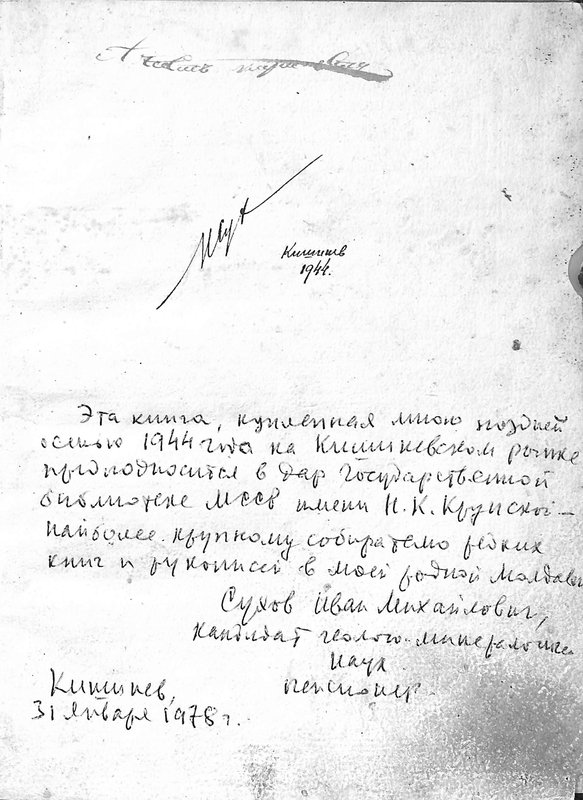 Кишинев
1944.
Эта книга, купленная мною поздней
осенью 1944 года на Кишиневском рынке
преподносится в дар Государственной
библиотеке МССР имени Н. К. Крупской –
наиболее крупному собирателю редких
книг и рукописей в моей родной Молдавии
Сухов Иван Михайлович,
кандидат геолого-минералогич.
наук
пенсионер.
Кишинев,
31 января 1978 г.